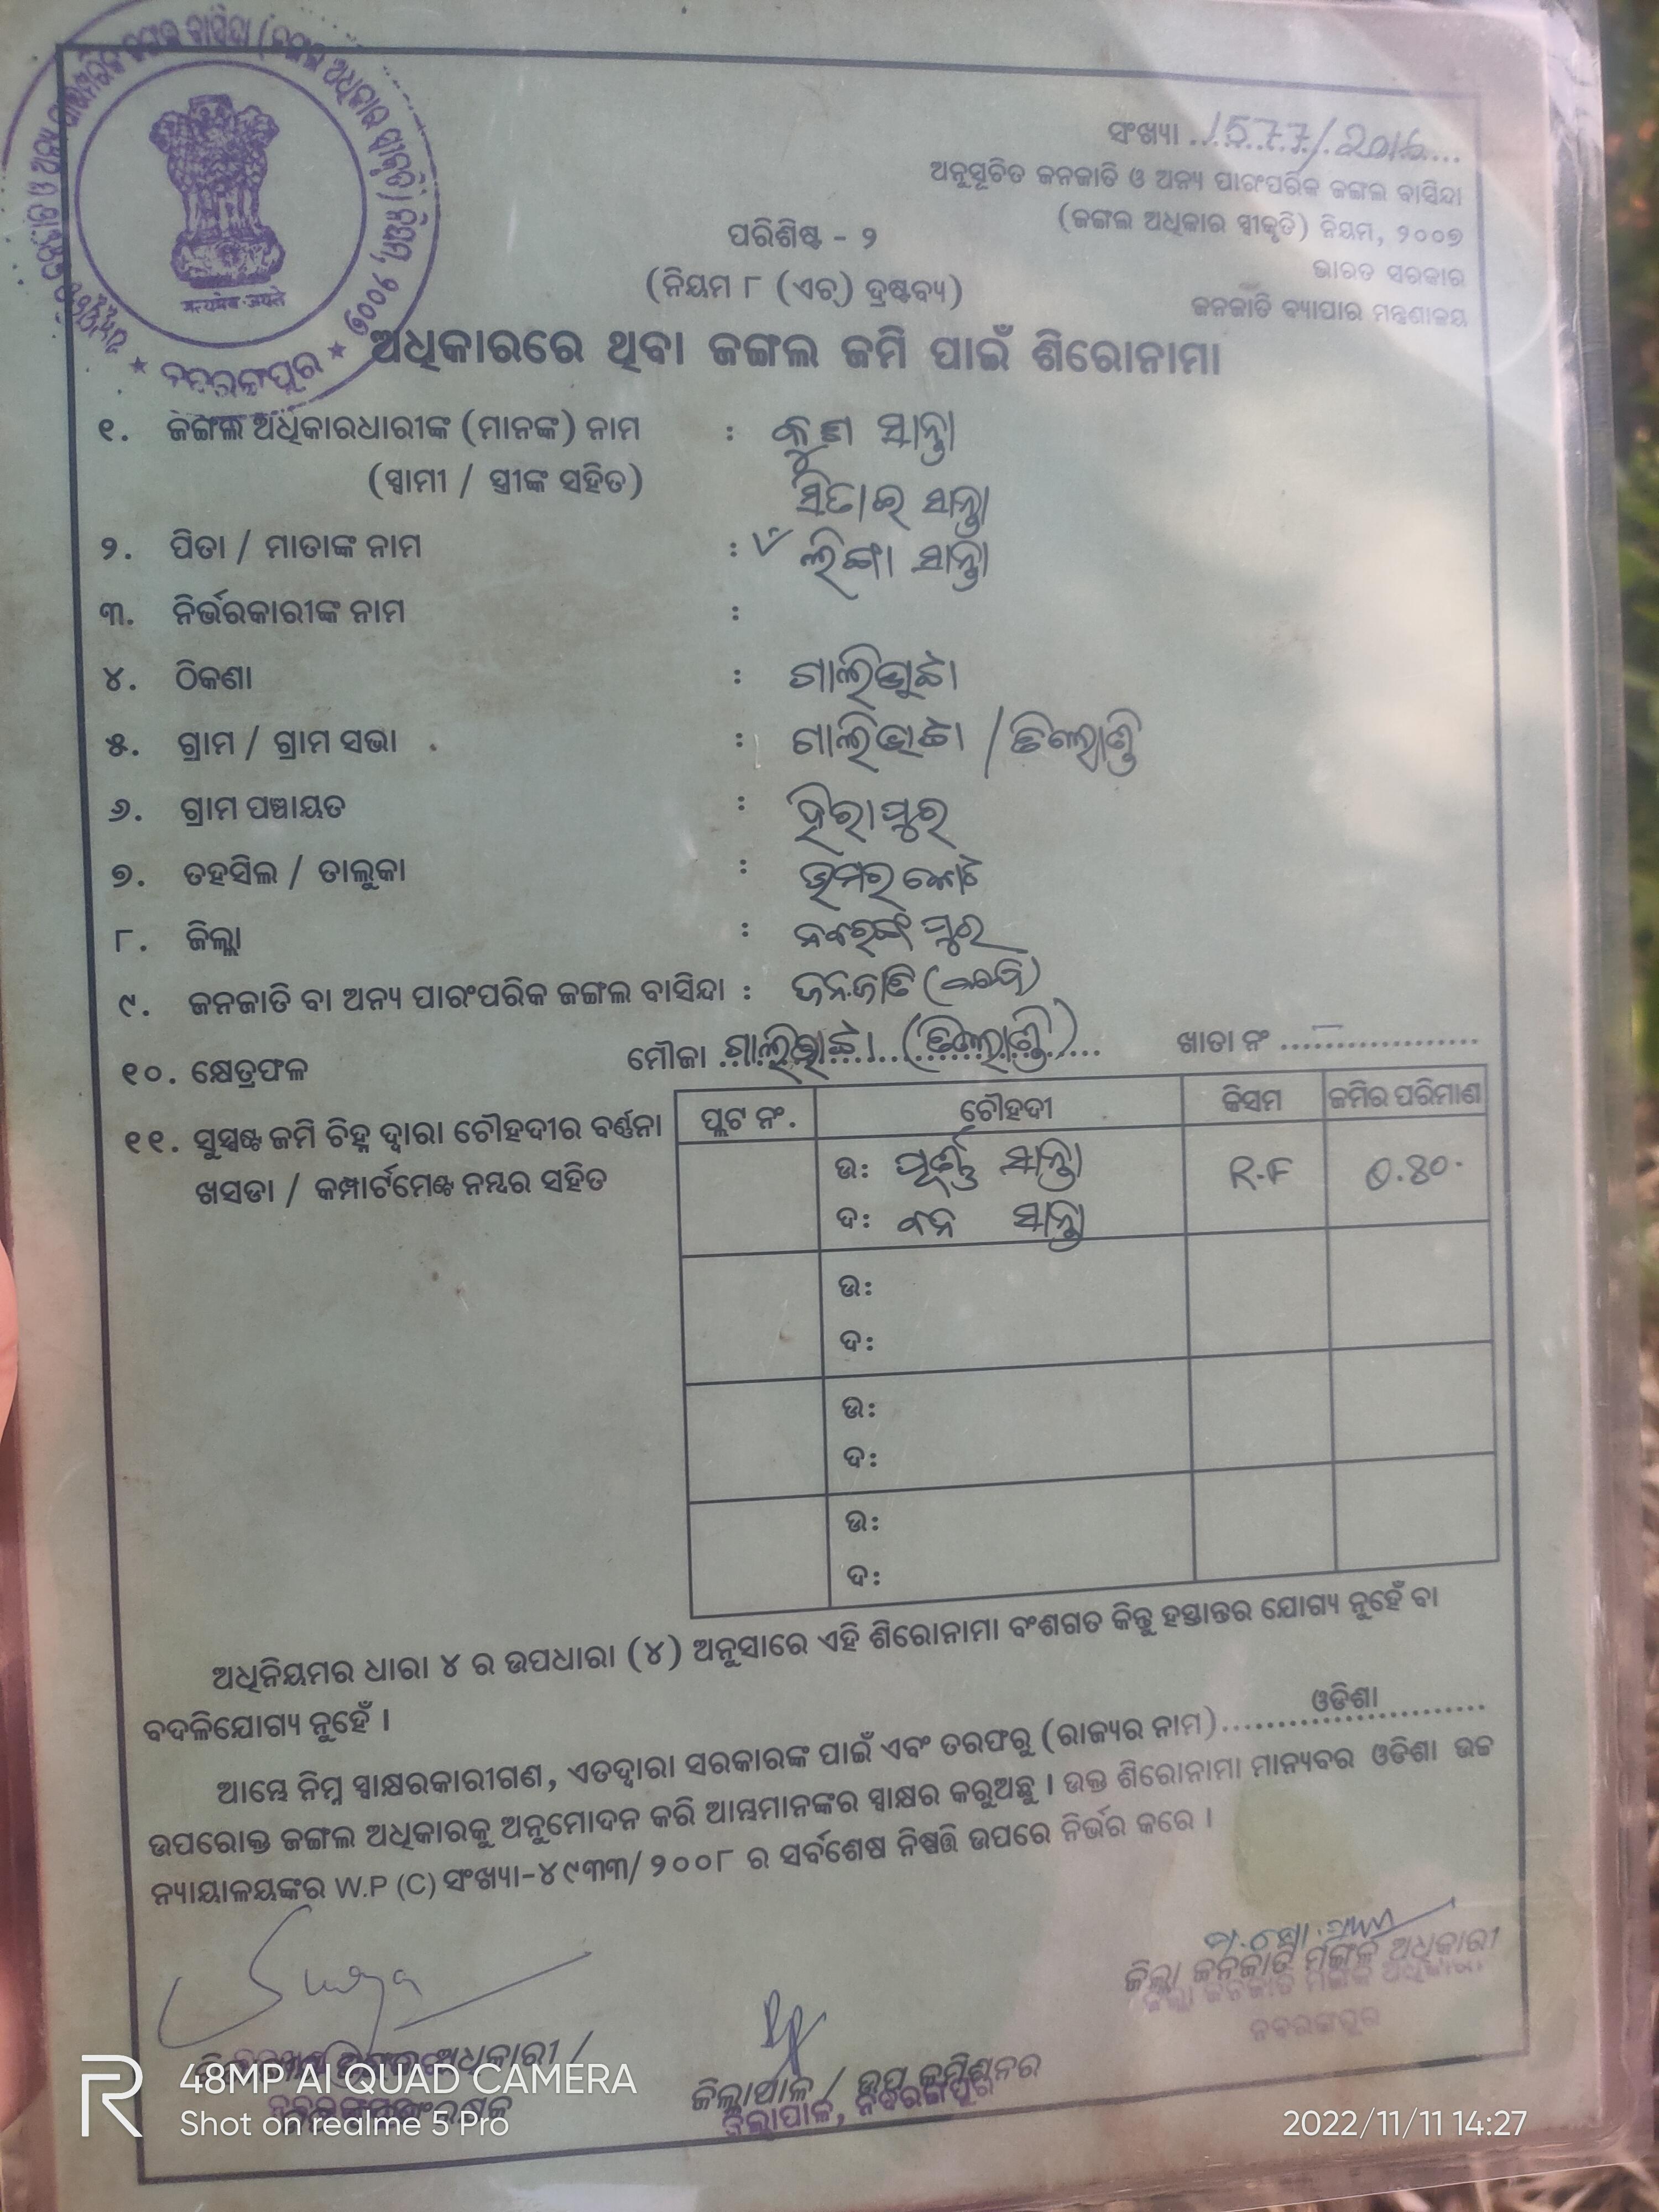 ସଂଖ୍ୟା ..1577/2016....
ଅନୁସୂଚିତ ଜନଜାତି ଓ ଅନ୍ୟ ପାରଂପରିକ ଜଙ୍ଗଲ ବାସିନ୍ଦା
(ଜଙ୍ଗଲ ଅଧିକାର ସ୍ୱୀକୃତି) ନିୟମ, ୨୦୦୭
ଭାରତ ସରକାର
ଜନଜାତି ବ୍ୟାପାର ମନ୍ତ୍ରଣାଳୟ
ପରିଶିଷ୍ଟ - ୨
(ନିୟମ ୮ (ଏଚ୍) ଦ୍ରଷ୍ଟବ୍ୟ)
सत्यमेव जयते
ନବରଙ୍ଗପୁର
ଅଧିକାରରେ ଥିବା ଜଙ୍ଗଲ ଜମି ପାଇଁ ଶିରୋନାମା
୧. ଜଙ୍ଗଲ ଅଧିକାରଧାରୀଙ୍କ (ମାନଙ୍କ) ନାମ : ସାନ୍ତା
(ସ୍ୱାମୀ / ସ୍ତ୍ରୀଙ୍କ ସହିତ) ସାନ୍ତା
୨. ପିତା / ମାତାଙ୍କ ନାମ : ଲିଙ୍ଗା ସାନ୍ତା
୩. ନିର୍ଭରକାରୀଙ୍କ ନାମ :
୪. ଠିକଣା :
୫. ଗ୍ରାମ / ଗ୍ରାମ ସଭା :
୬. ଗ୍ରାମ ପଞ୍ଚାୟତ : ହିରାପୁର
୭. ତହସିଲ / ତାଲୁକା : ଉମରକୋଟ
୮. ଜିଲ୍ଲା : ନବରଙ୍ଗପୁର
୯. ଜନଜାତି ବା ଅନ୍ୟ ପାରଂପରିକ ଜଙ୍ଗଲ ବାସିନ୍ଦା : ଜନଜାତି
୧୦. କ୍ଷେତ୍ରଫଳ ମୌଜା ଖାତା ନଂ ..................
୧୧. ସୁସ୍ପଷ୍ଟ ଜମି ଚିହ୍ନ ଦ୍ୱାରା ଚୌହଦୀର ବର୍ଣ୍ଣନା
ଖସଡା / କମ୍ପାର୍ଟମେଣ୍ଟ ନମ୍ବର ସହିତ
ପ୍ଲଟ ନଂ. ଚୌହଦୀ କିସମ ଜମିର ପରିମାଣ
ଉ: ପୂର୍ଣ୍ଣ ସାନ୍ତା R.F 0.80
ଦ: ସାନ୍ତା
ଉ:
ଦ:
ଉ:
ଦ:
ଉ:
ଦ:
ଅଧିନିୟମର ଧାରା ୪ ର ଉପଧାରା (୪) ଅନୁସାରେ ଏହି ଶିରୋନାମା ବଂଶଗତ କିନ୍ତୁ ହସ୍ତାନ୍ତର ଯୋଗ୍ୟ ନୁହେଁ ବା
ବଦଳିଯୋଗ୍ୟ ନୁହେଁ ।
ଆମ୍ଭେ ନିମ୍ନ ସ୍ୱାକ୍ଷରକାରୀଗଣ, ଏତଦ୍ୱାରା ସରକାରଙ୍କ ପାଇଁ ଏବଂ ତରଫରୁ (ରାଜ୍ୟର ନାମ)......ଓଡିଶା......
ଉପରୋକ୍ତ ଜଙ୍ଗଲ ଅଧିକାରକୁ ଅନୁମୋଦନ କରି ଆମ୍ଭମାନଙ୍କର ସ୍ୱାକ୍ଷର କରୁଅଛୁ । ଉକ୍ତ ଶିରୋନାମା ମାନ୍ୟବର ଓଡିଶା ଉଚ୍ଚ
ନ୍ୟାୟାଳୟଙ୍କର W.P (C) ସଂଖ୍ୟା-୪୯୩୩/ ୨୦୦୮ ର ସର୍ବଶେଷ ନିଷ୍ପତ୍ତି ଉପରେ ନିର୍ଭର କରେ ।
ଜିଲ୍ଲା ଜନଜାତି ମଙ୍ଗଳ ଅଧିକାରୀ
ଜିଲ୍ଲା ଜନଜାତି ମଙ୍ଗଳ ଅଧିକାରୀ
ନବରଙ୍ଗପୁର
ଅଧିକାରୀ /
ଜିଲ୍ଲାପାଳ / ଉପ କମିଶନର
ଜିଲ୍ଲାପାଳ, ନବରଙ୍ଗପୁର
48MP AI QUAD CAMERA
Shot on realme 5 Pro
2022/11/11 14:27